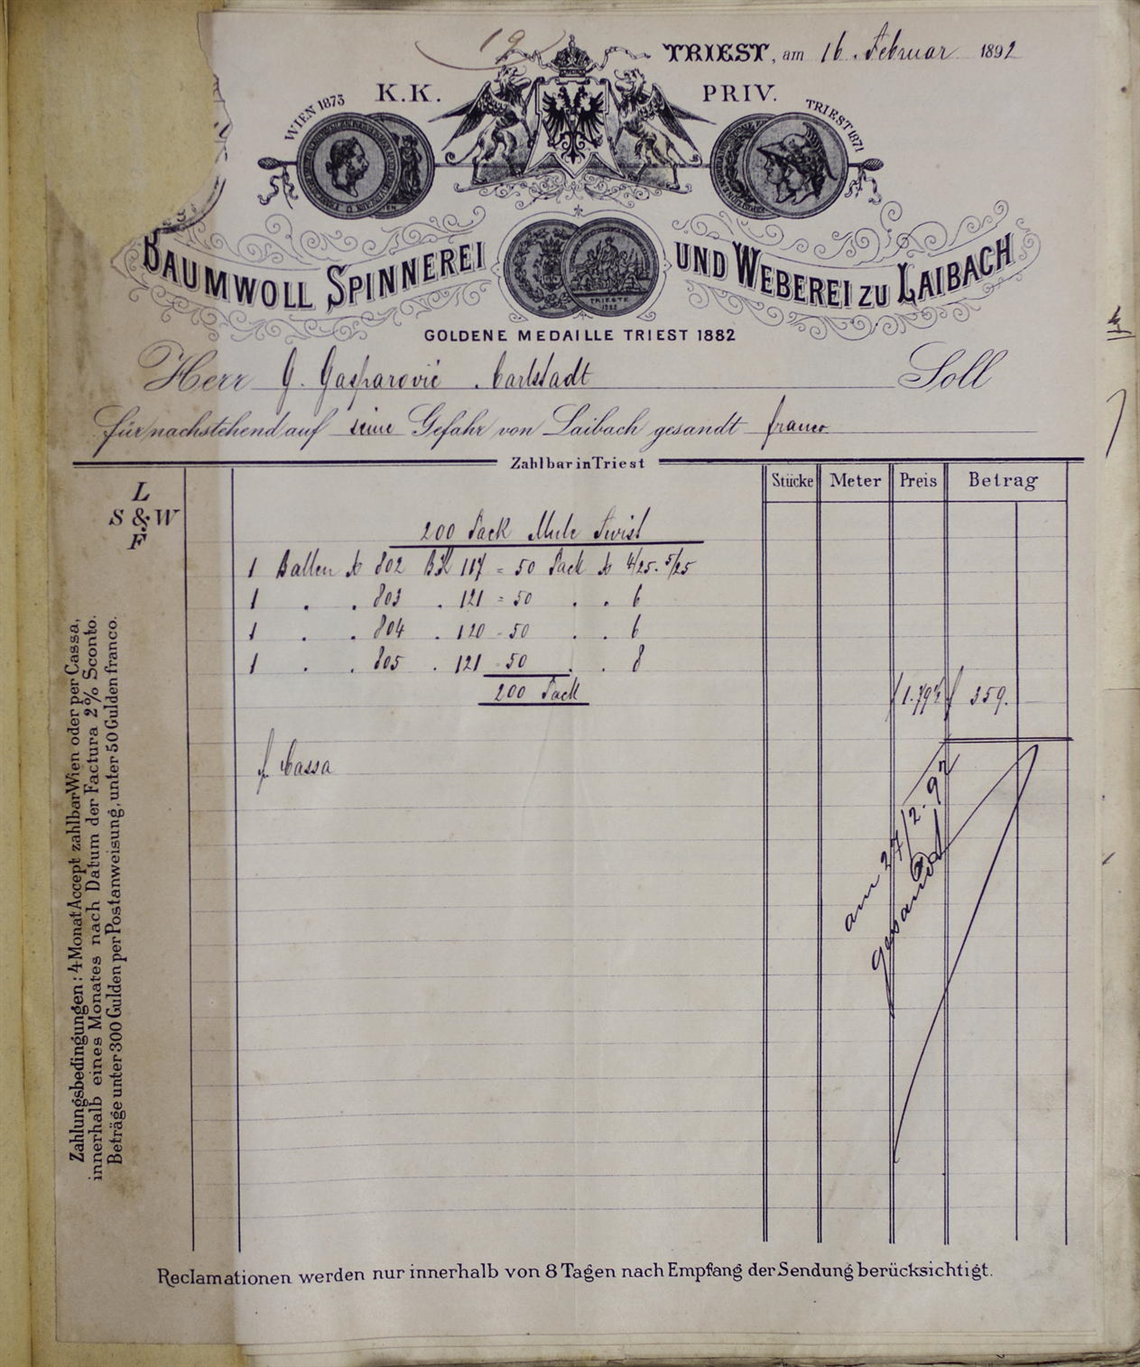 19
TRIEST, am 16. Februar 1892
K.K. PRIV.
WIEN 1873
TRIEST 1871
BAUMWOLL SPINNEREI UND WEBEREI ZU LAIBACH
TRIESTE
1882
GOLDENE MEDAILLE TRIEST 1882
Herr G. Gasparović Carlstadt Soll
für nachstehend auf seine Gefahr von Laibach gesandt franco
Zahlbar in Triest
Stücke Meter Preis Betrag
L
S & W
F
200 Pack Mule Twist
1 Ballen № 802 Bk 117 = 50 Pack № 4/25. 5/25
1 . . 803 . 121 = 50 . . 6
1 . . 804 . 120 = 50 . . 6
1 . . 805 . 121 = 50 . . 8
200 Pack f 359.
Cassa
am 27/2. 92
gesandt
Zahlungsbedingungen: 4 Monat Accept zahlbar Wien oder per Cassa,
innerhalb eines Monates nach Datum der Factura 2% Sconto.
Beträge unter 300 Gulden per Postanweisung, unter 50 Gulden franco.
Reclamationen werden nur innerhalb von 8 Tagen nach Empfang der Sendung berücksichtigt.